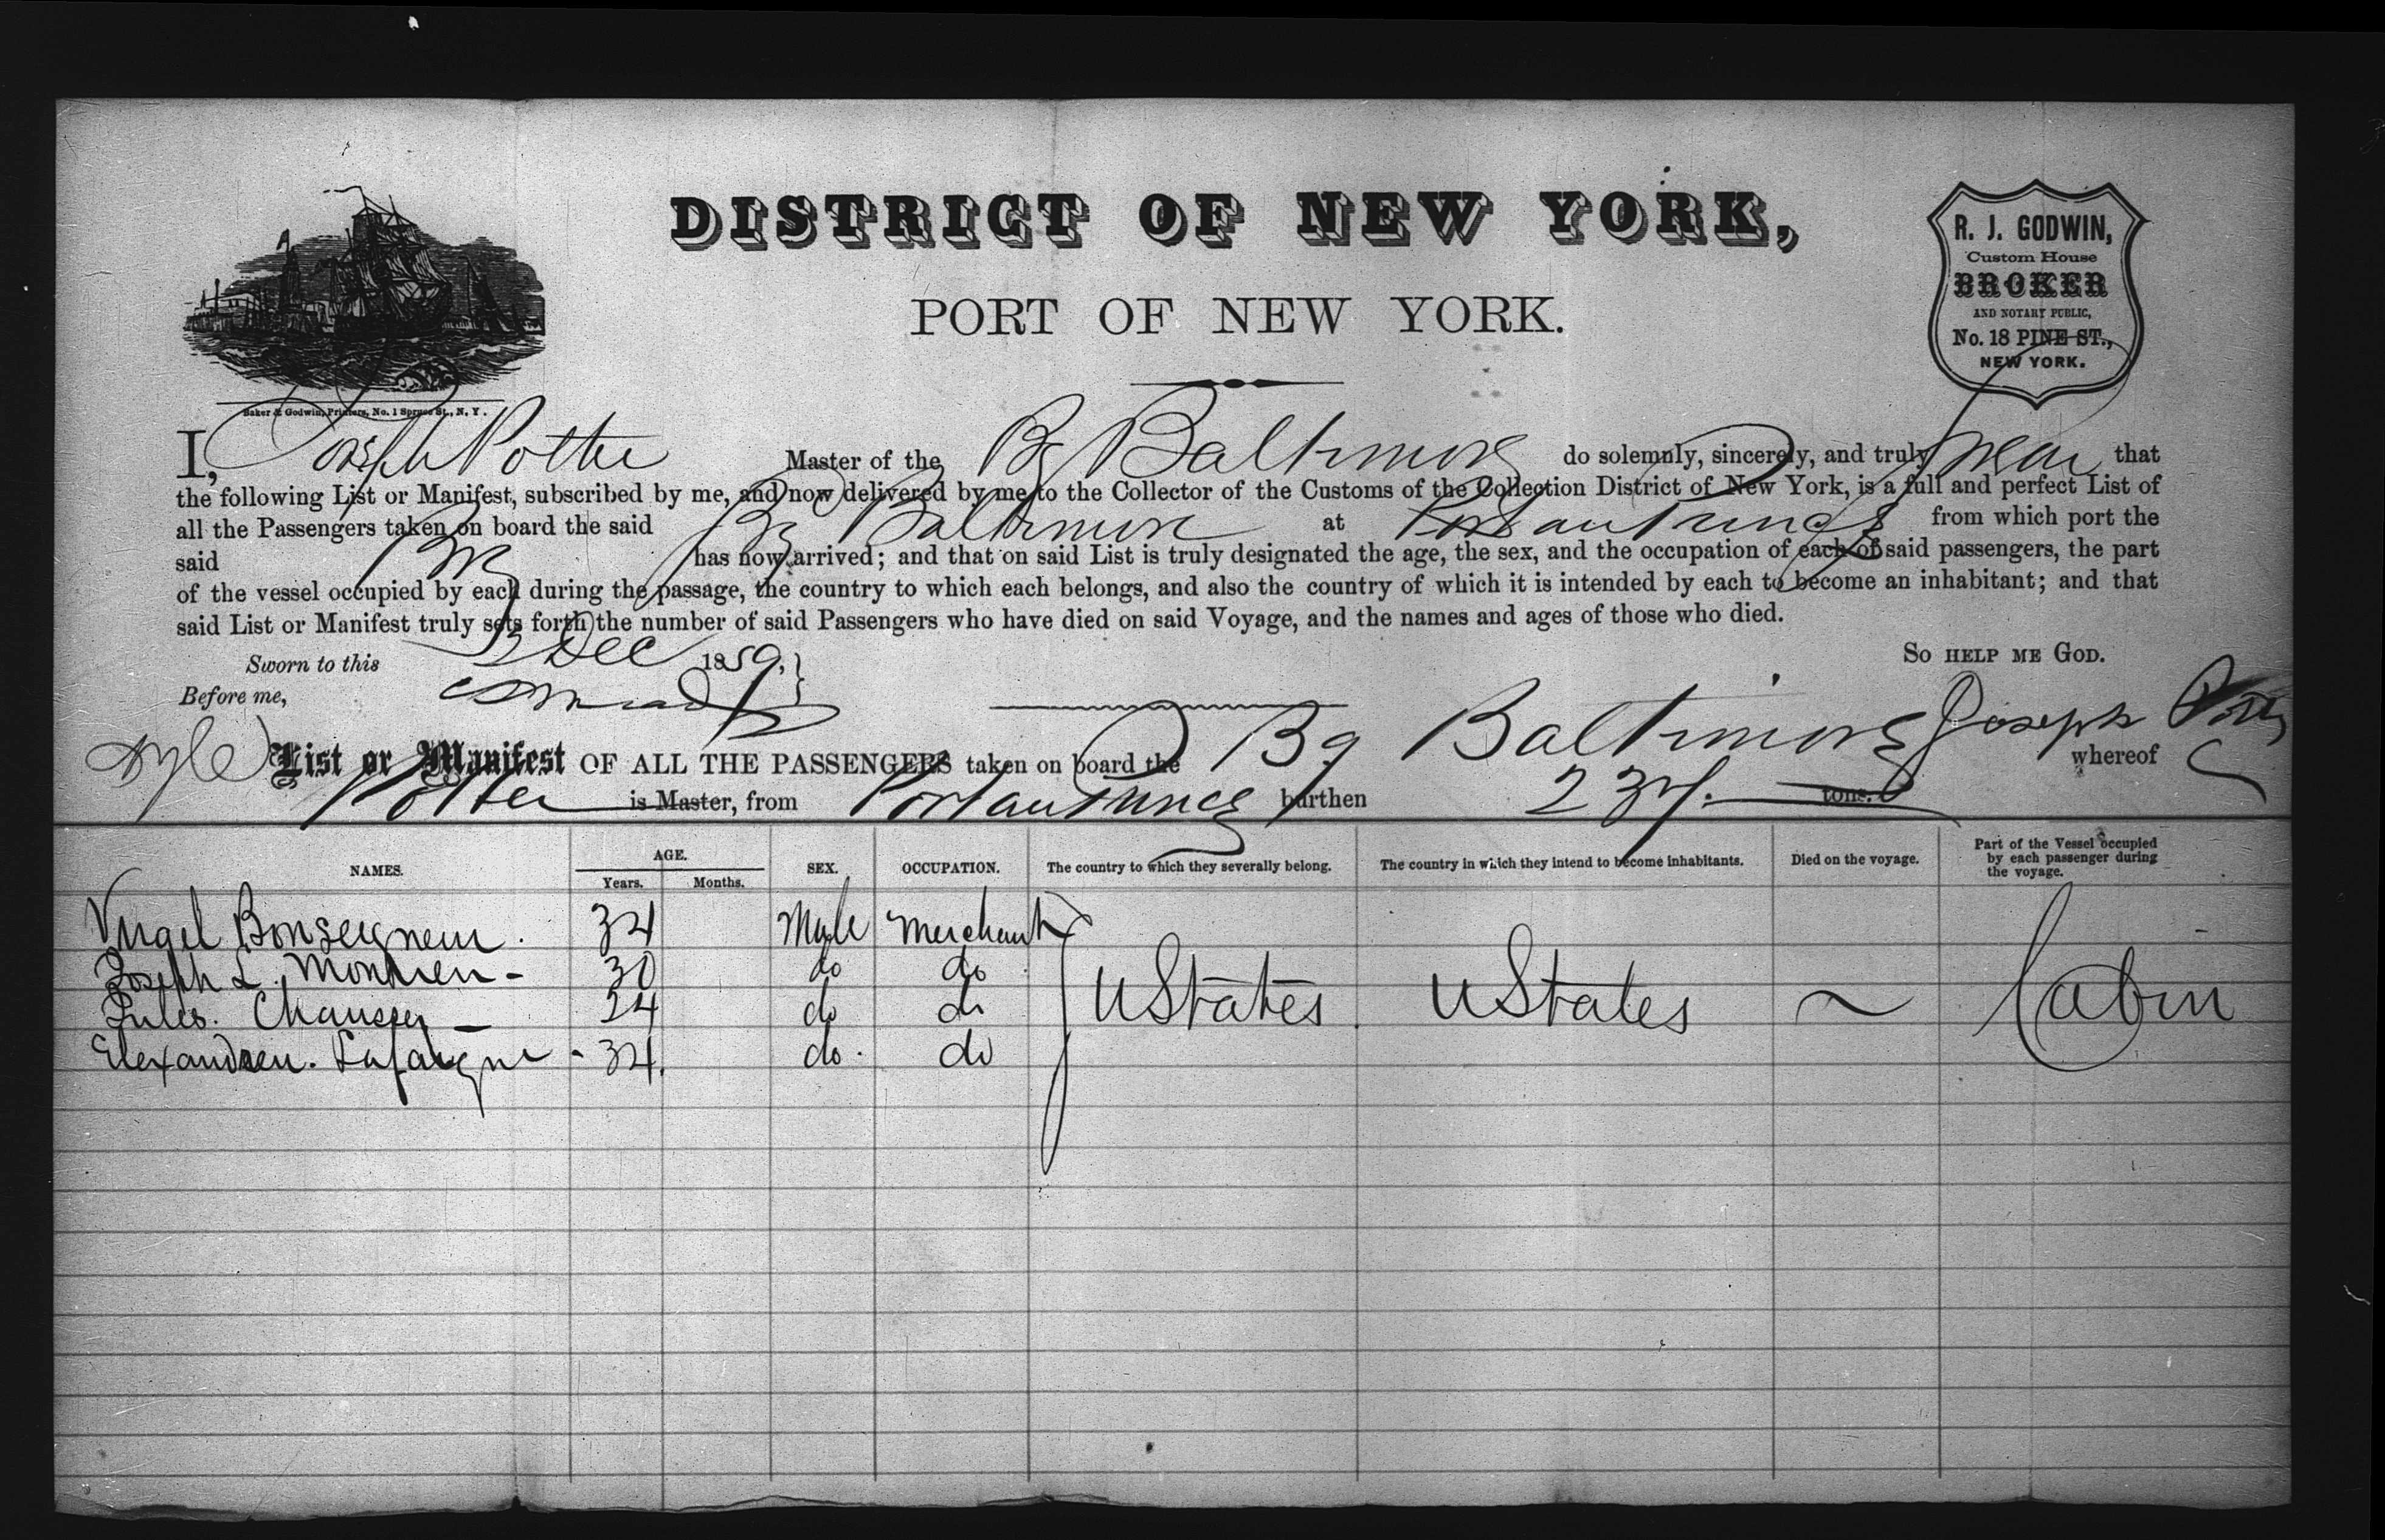 DISTRICT OF NEW YORK,
PORT OF NEW YORK.
R. J. GODWIN,
Custom House
BROKER
AND NOTARY PUBLIC,
No. 18 PINE ST.,
NEW YORK.
Baker & Godwin, Printers, No. 1 Spruce St., N. Y.
I, Joseph Potter Master of the Bg Baltimore do solemnly, sincerely, and truly swear that
the following List or Manifest, subscribed by me, and now delivered by me to the Collector of the Customs of the Collection District of New York, is a full and perfect List of
all the Passengers taken on board the said Bg Baltimore at Port au Prince from which port the
said Bg has now arrived; and that on said List is truly designated the age, the sex, and the occupation of each of said passengers, the part
of the vessel occupied by each during the passage, the country to which each belongs, and also the country of which it is intended by each to become an inhabitant; and that
said List or Manifest truly sets forth the number of said Passengers who have died on said Voyage, and the names and ages of those who died.
Sworn to this Dec 1859, So HELP ME GOD.
Before me,
Joseph Potter
List or Manifest OF ALL THE PASSENGERS taken on board the Bg Baltimore whereof
Potter is Master, from Port au Prince burthen tons.
NAMES. AGE. SEX. OCCUPATION. The country to which they severally belong. The country in which they intend to become inhabitants. Died on the voyage. Part of the Vessel occupied by each passenger during the voyage.
Years. Months.
Virgil Bonseigneur. 34 Male Merchant
Joseph L. 30 do do
Jules. 24 do do
UStates UStates ~ Cabin
Lafargue - 34. do. do